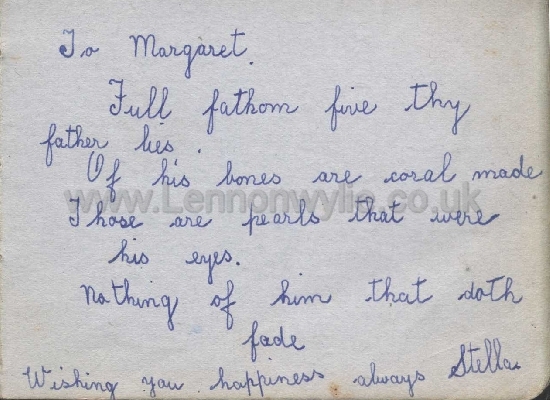 To Margaret.
Full fathom five thy
father lies.
Of his bones are coral made
www.Lennonwylie.co.uk
Those are pearls that were
his eyes.
Nothing of him that doth
fade
Wishing you happiness always Stella